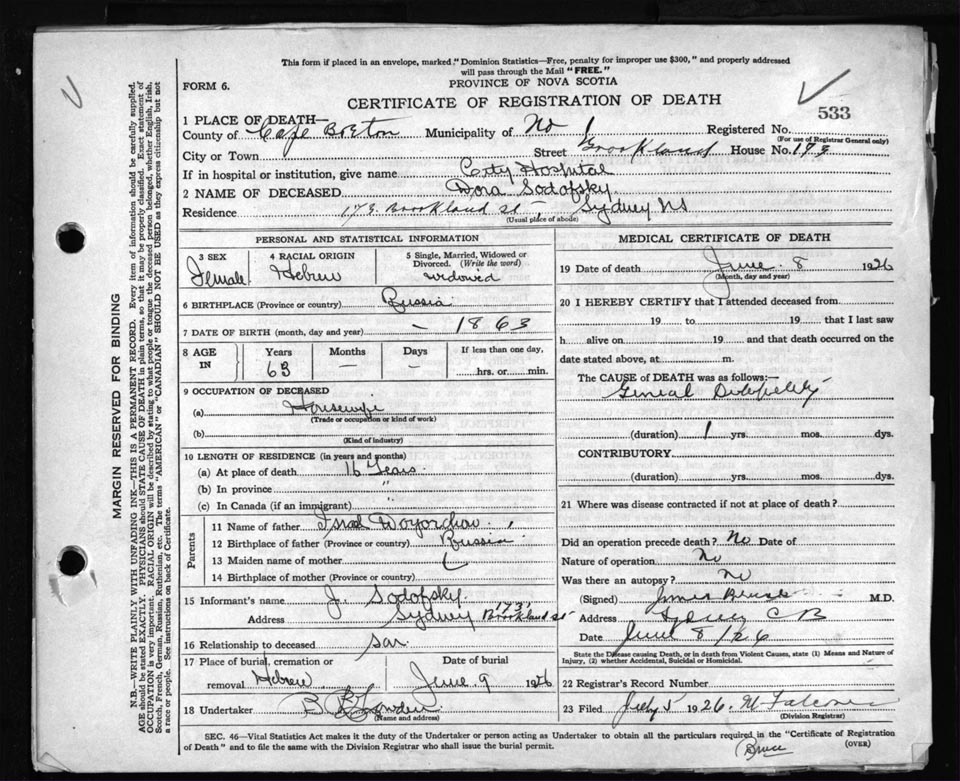 This form if placed in an envelope, marked." Dominion Statistics—Free, penalty for improper use $300," and properly addressed
will pass through the Mail "FREE."
FORM 6.
PROVINCE OF NOVA SCOTIA
CERTIFICATE OF REGISTRATION OF DEATH
533
1 PLACE OF DEATH—
County of Cape Breton Municipality of No 1 Registered No.
(For use of Registrar General only)
City or Town Street Brookland House No. 173
If in hospital or institution, give name City Hospital
2 NAME OF DECEASED Dora Sodofsky
Residence 173 Brookland St - Sydney NS
(Usual place of abode)
PERSONAL AND STATISTICAL INFORMATION
3 SEX
Female
4 RACIAL ORIGIN
Hebrew
5 Single, Married, Widowed or
Divorced. (Write the word)
widowed
6 BIRTHPLACE (Province or country) Russia
7 DATE OF BIRTH (month, day and year) — 1863
8 AGE
IN
Years
63
Months
—
Days
—
If less than one day,
hrs. or min.
9 OCCUPATION OF DECEASED
(a) Housewife
(Trade or occupation or kind of work)
(b)
(Kind of industry)
10 LENGTH OF RESIDENCE (in years and months)
(a) At place of death 16 Years
(b) In province "
(c) In Canada (if an immigrant) "
Parents
11 Name of father
12 Birthplace of father (Province or country) Russia
13 Maiden name of mother
14 Birthplace of mother (Province or country)
15 Informant's name J. Sodofsky
Address Sydney 173 Brookland St
16 Relationship to deceased son
17 Place of burial, cremation or
removal Hebrew
Date of burial
June 9 1926
18 Undertaker
(Name and address)
MEDICAL CERTIFICATE OF DEATH
19 Date of death June 8 1926
(Month, day and year)
20 I HEREBY CERTIFY that I attended deceased from
19 to 19 that I last saw
h alive on 19 and that death occurred on the
date stated above, at m.
The CAUSE of DEATH was as follows:—
(duration) 1 yrs. mos. dys.
CONTRIBUTORY
(duration) yrs. mos. dys.
21 Where was disease contracted if not at place of death?
Did an operation precede death? No Date of
Nature of operation No
Was there an autopsy? no
(Signed) M.D.
Address Sydney C B
Date June 8/26
State the Disease causing Death, or in death from Violent Causes, state (1) Means and Nature of
Injury, (2) whether Accidental, Suicidal or Homicidal.
22 Registrar's Record Number
23 Filed July 5 1926.
(Division Registrar)
SEC. 46—Vital Statistics Act makes it the duty of the Undertaker or person acting as Undertaker to obtain all the particulars required in the "Certificate of Registration
of Death" and to file the same with the Division Registrar who shall issue the burial permit.
(OVER)
Bruce
MARGIN RESERVED FOR BINDING
N.B.—WRITE PLAINLY WITH UNFADING INK—THIS IS A PERMANENT RECORD. Every item of information should be carefully supplied.
AGE should be stated EXACTLY. PHYSICIANS should STATE CAUSE OF DEATH in plain terms, so that it may be properly classified. Exact statement of
OCCUPATION is very important. RACIAL ORIGIN will be described by stating to what people or tongue the deceased person belonged, whether English, Irish,
Scotch, French, German, Russian, Ruthenian, etc. The terms "AMERICAN" or "CANADIAN" SHOULD NOT BE USED as they express citizenship but not
a race or people. See instructions on back of Certificate.